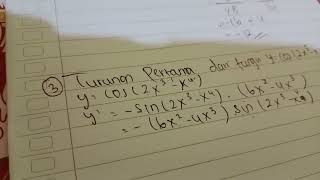 48
-16 + 4
-12
③ Turunan Pertama dari fungsi y = cos(2x³
y = cos(2x³ - x⁴)
y' = -sin(2x³ - x⁴) . (6x² - 4x³)
= - (6x² - 4x³) sin(2x³ - x⁴)